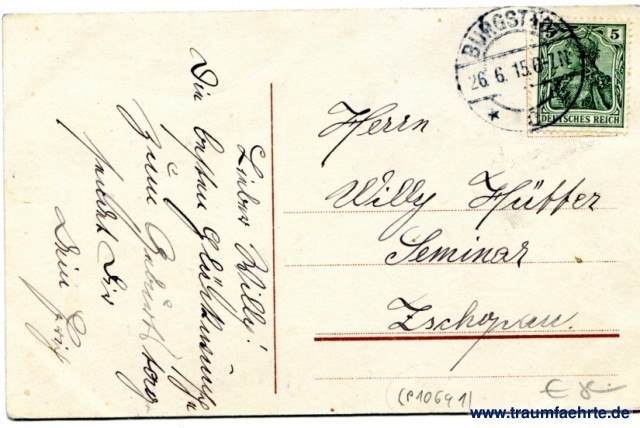 Lieber Willy!
Die besten Glückwünsche
zum Geburtstage
sendet Dir
Dein
BURGSTÄDT
26.6.15.
5
DEUTSCHES REICH
Herrn
Willy Hütter
Seminar
Zschopau.
(P10691)
www.traumfaehrte.de